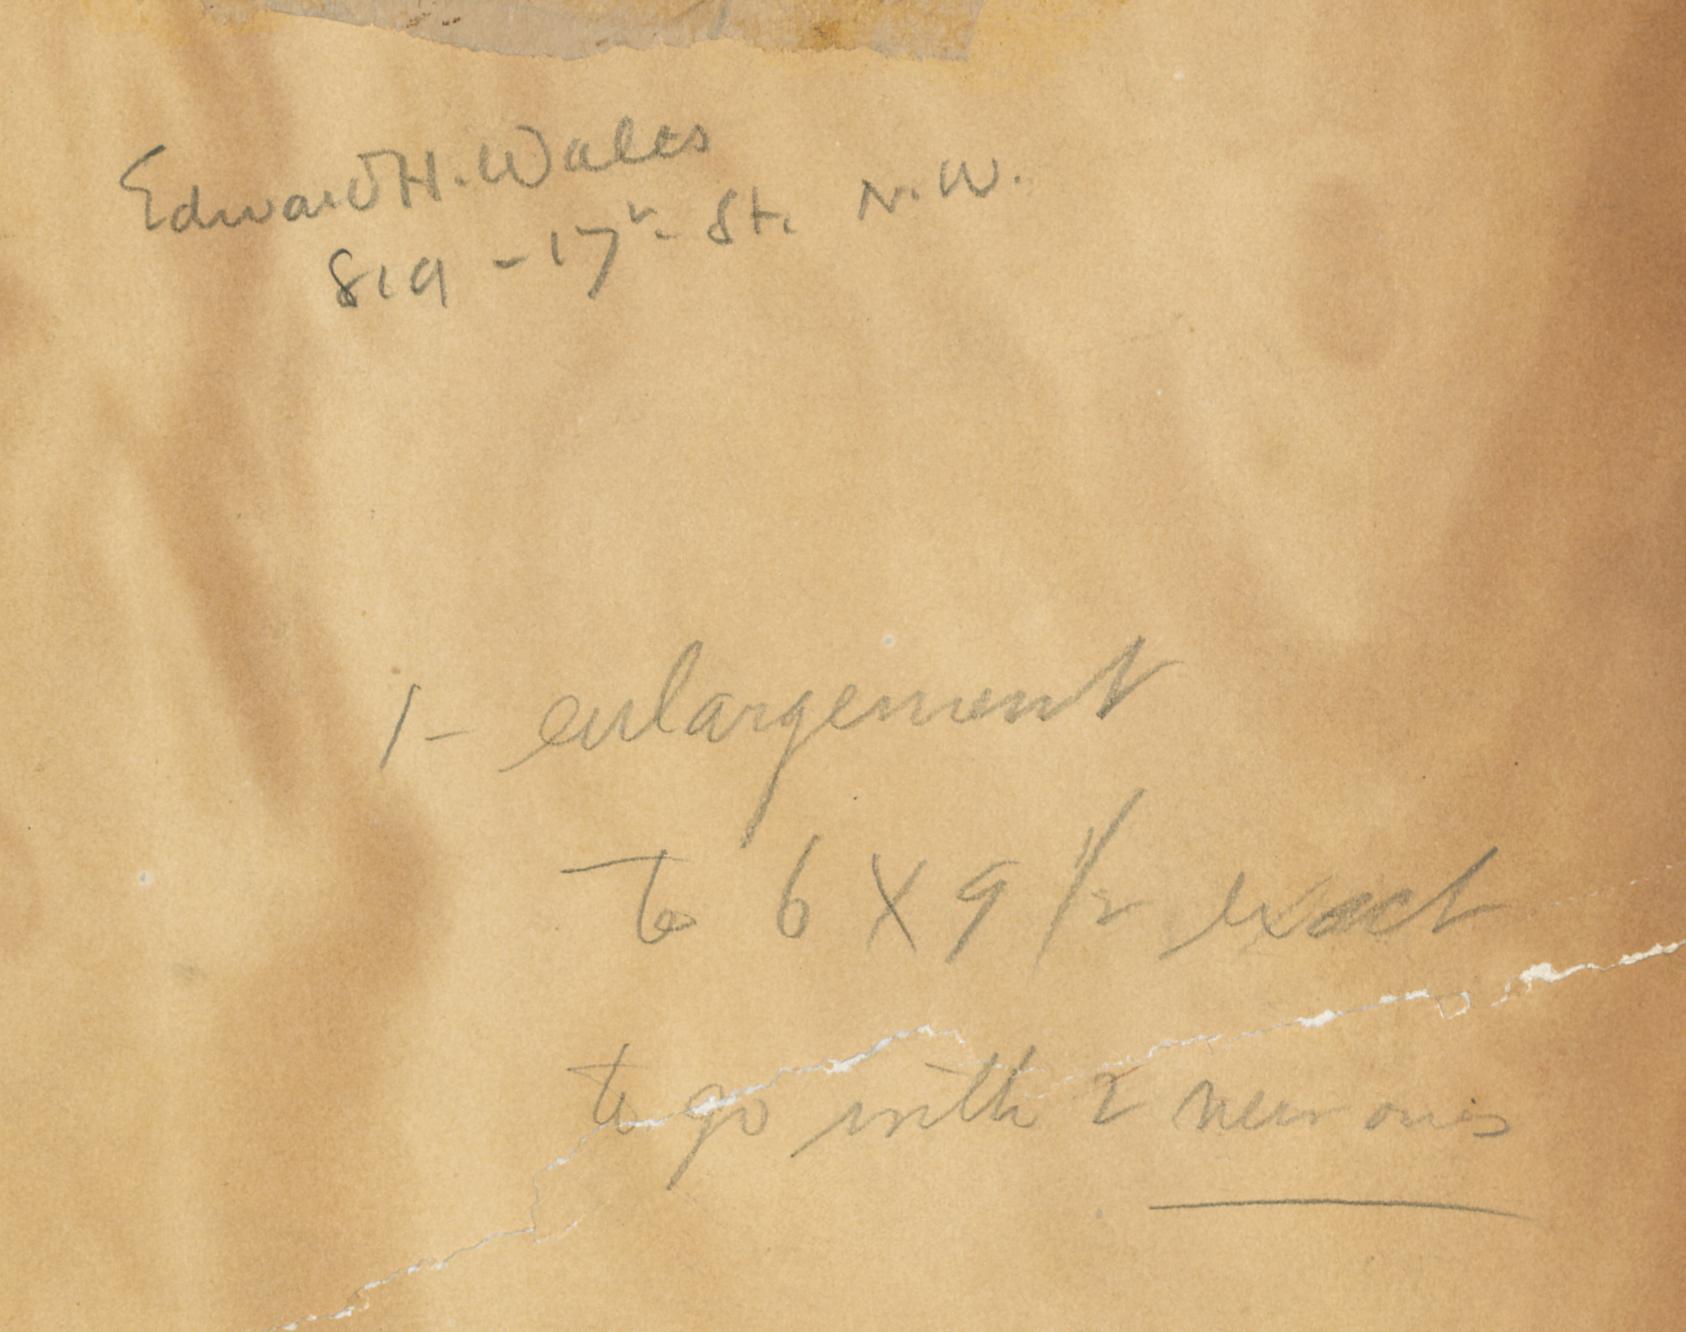 Edward H. Wales
819 - 17th St. N.W.
1 - enlargement
to 6 X 9 1/2 exact
to go with 2 new ones